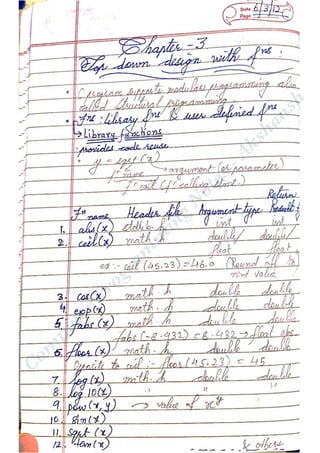 Date 6/3/12
Page
Chapter - 3
Top down design with fns.
C program supports modular programming also
called structural programming.
Fns: library fns & user defined fns
→ Library functions
provides code reuse
y = sqrt (x)
fn name → argument (or parameter)
fn call (fn calling stmt.)
Fn name Header file Argument type Return Result type
1. abs(x) stdlib.h int int
2. ceil(x) math.h double/ double/
float float
ex:- ceil (45.23) = 46.0 (Round off to
next value)
3. cos(x) math.h double double
4. exp(x) math.h double double
5. fabs(x) math.h double double
fabs(-8.432) = 8.432 → float abs
6. floor(x) math.h double double
Opposite to ceil :- floor (45.23) = 45
7. log(x) math.h double double
8. log10(x) " " "
9. pow(x,y) → value of x^y
10. sin(x)
11. sqrt(x)
12. tan(x) & others